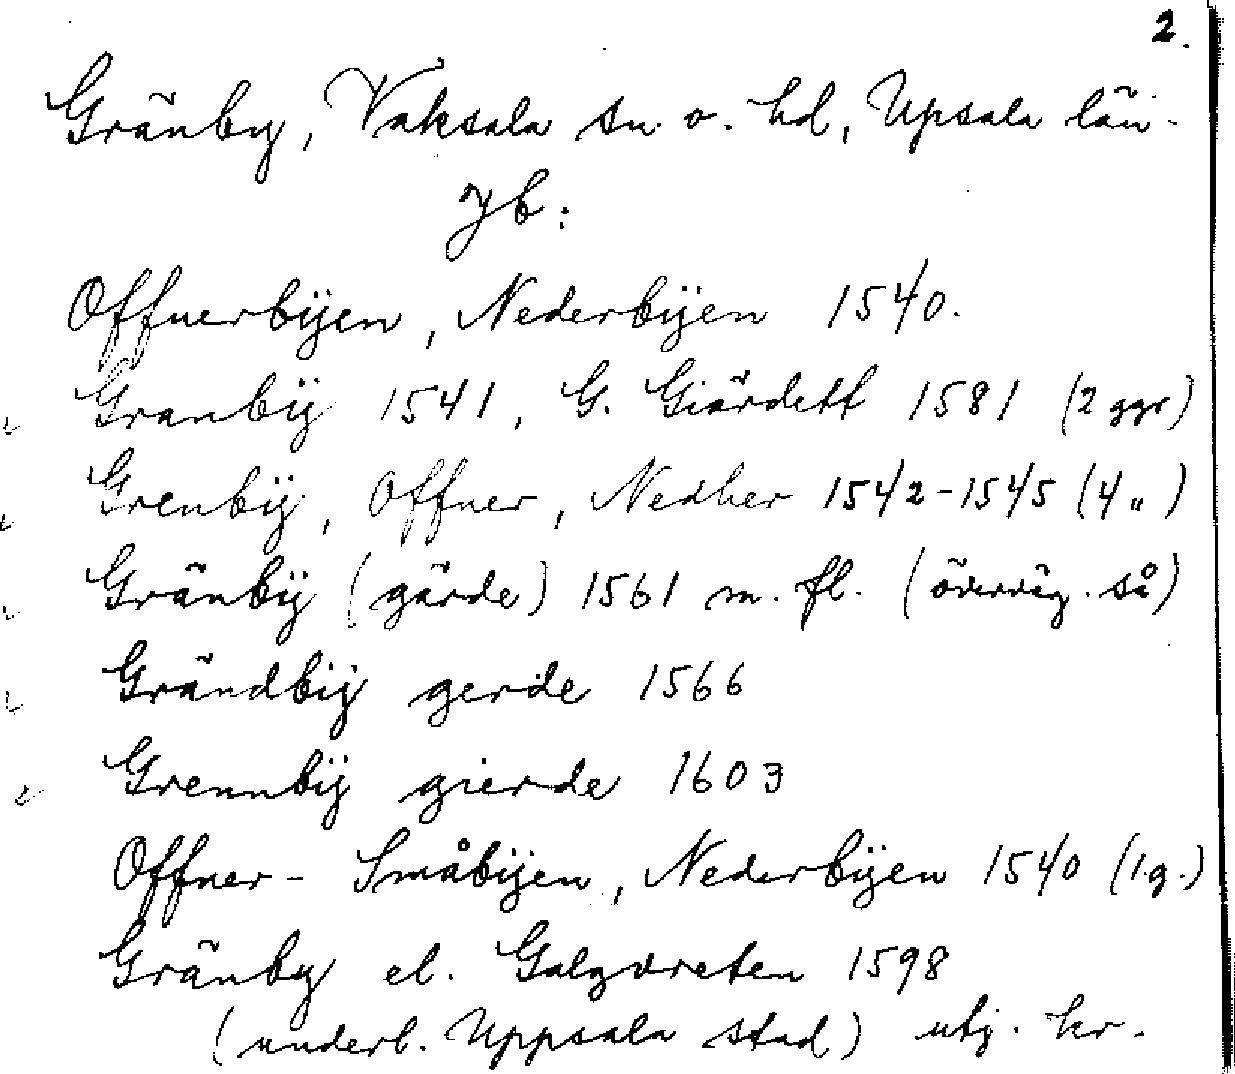 2.
Gränby, Vaksala sn o. hd, Upsala län.
Jb:
Offnerbÿen, Nederbÿen 1540.
Granbÿ 1541, G. Giärdett 1581 (2 ggr)
Grenbÿ, Offner, Nedher 1542-1545 (4 „)
Gränbÿ (gärde) 1561 m. fl. (överväg. så)
Grändbÿ gerde 1566
Grennbÿ gierde 1603
Offner- Småbÿen, Nederbÿen 1540 (1 g.)
Gränby el. Galgvreten 1598
(underl. Uppsala stad) utj. kr.